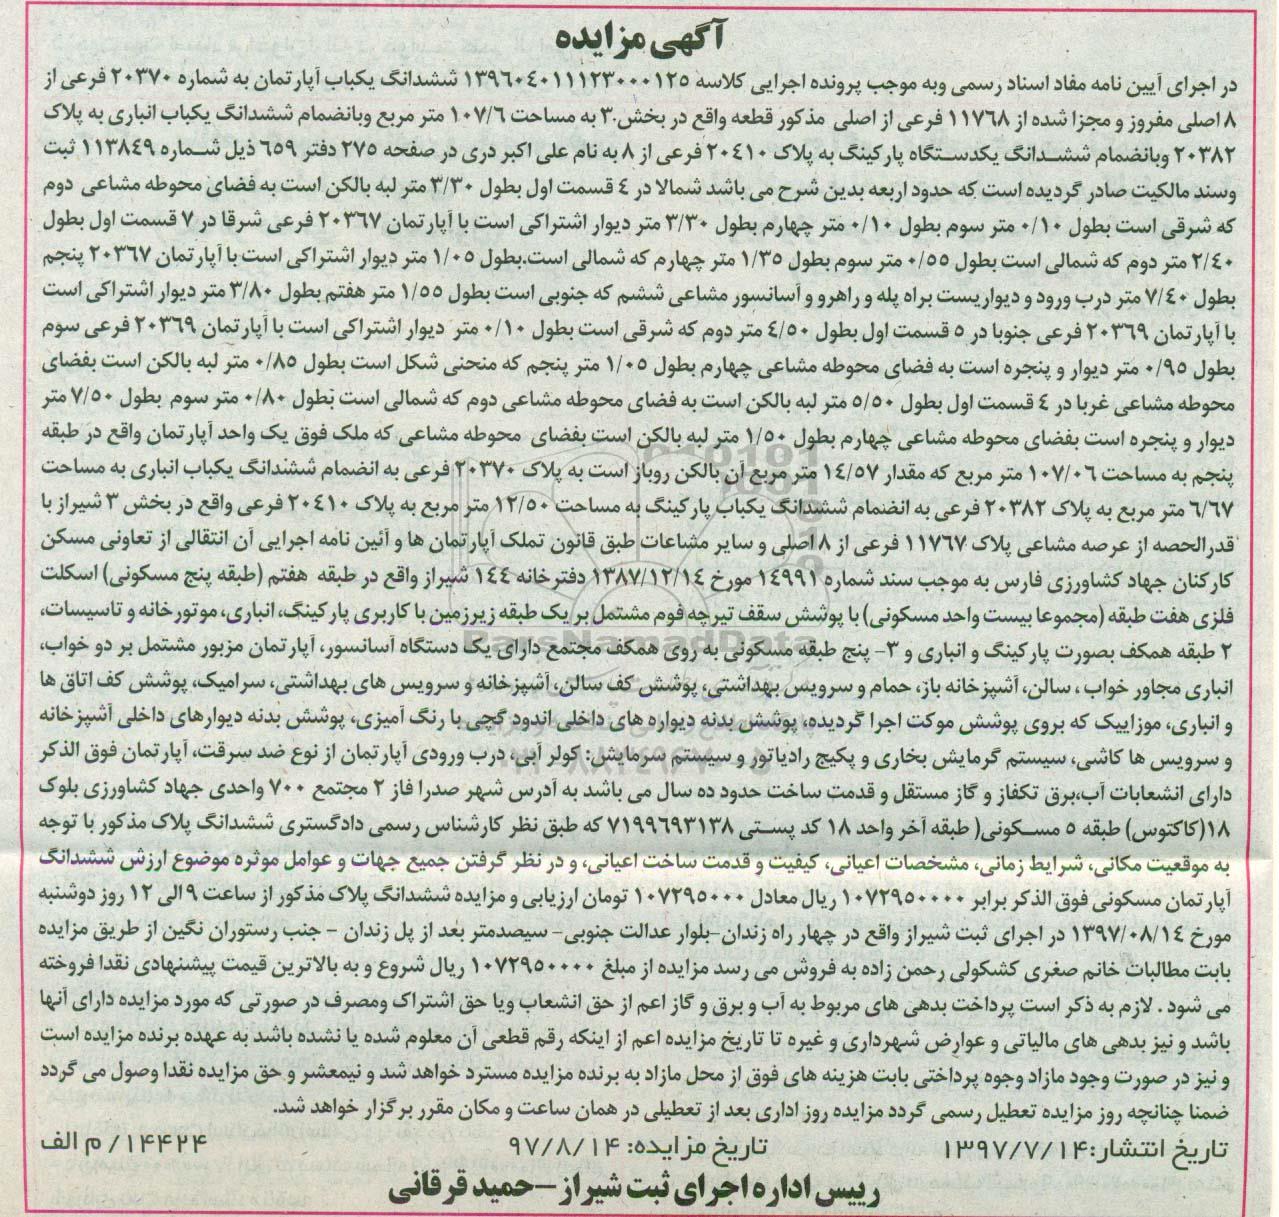 آگهی مزایده
در اجرای آیین نامه مفاد اسناد رسمی وبه موجب پرونده اجرایی کلاسه ۱۳۹۶۰۴۰۱۱۱۲۳۰۰۰۱۲۵ ششدانگ یکباب آپارتمان به شماره ۲۰۳۷۰ فرعی از
۸ اصلی مفروز و مجزا شده از ۱۱۷۶۸ فرعی از اصلی مذکور قطعه واقع در بخش۳۰ به مساحت ۱۰۷/۶ متر مربع وبانضمام ششدانگ یکباب انباری به پلاک
۲۰۳۸۲ وبانضمام ششدانگ یکدستگاه پارکینگ به پلاک ۲۰۴۱۰ فرعی از ۸ به نام علی اکبر دری در صفحه ۲۷۵ دفتر ۶۵۹ ذیل شماره ۱۱۳۸۴۹ ثبت
وسند مالکیت صادر گردیده است که حدود اربعه بدین شرح می باشد شمالا در ۴ قسمت اول بطول ۳/۳۰ متر لبه بالکن است به فضای محوطه مشاعی دوم
که شرقی است بطول ۰/۱۰ متر سوم بطول ۰/۱۰ متر چهارم بطول ۳/۳۰ متر دیوار اشتراکی است با آپارتمان ۲۰۳۶۷ فرعی شرقا در ۷ قسمت اول بطول
۲/۴۰ متر دوم که شمالی است بطول ۰/۵۵ متر سوم بطول ۱/۳۵ متر چهارم که شمالی است.بطول ۱/۰۵ متر دیوار اشتراکی است با آپارتمان ۲۰۳۶۷ پنجم
بطول ۷/۴۰ متر درب ورود و دیواریست براه پله و راهرو و آسانسور مشاعی ششم که جنوبی است بطول ۱/۵۵ متر هفتم بطول ۳/۸۰ متر دیوار اشتراکی است
با آپارتمان ۲۰۳۶۹ فرعی جنوبا در ۵ قسمت اول بطول ۴/۵۰ متر دوم که شرقی است بطول ۰/۱۰ متر دیوار اشتراکی است با آپارتمان ۲۰۳۶۹ فرعی سوم
بطول ۰/۹۵ متر دیوار و پنجره است به فضای محوطه مشاعی چهارم بطول ۱/۰۵ متر پنجم که منحنی شکل است بطول ۰/۸۵ متر لبه بالکن است بفضای
محوطه مشاعی غربا در ۴ قسمت اول بطول ۵/۵۰ متر لبه بالکن است به فضای محوطه مشاعی دوم که شمالی است بطول ۰/۸۰ متر سوم بطول ۷/۵۰ متر
دیوار و پنجره است بفضای محوطه مشاعی چهارم بطول ۱/۵۰ متر لبه بالکن است بفضای محوطه مشاعی که ملک فوق یک واحد آپارتمان واقع در طبقه
پنجم به مساحت ۱۰۷/۰۶ متر مربع که مقدار ۱۴/۵۷ متر مربع آن بالکن روباز است به پلاک ۲۰۳۷۰ فرعی به انضمام ششدانگ یکباب انباری به مساحت
۶/۶۷ متر مربع به پلاک ۲۰۳۸۲ فرعی به انضمام ششدانگ یکباب پارکینگ به مساحت ۱۲/۵۰ متر مربع به پلاک ۲۰۴۱۰ فرعی واقع در بخش ۳ شیراز با
قدرالحصه از عرصه مشاعی پلاک ۱۱۷۶۷ فرعی از ۸ اصلی و سایر مشاعات طبق قانون تملک آپارتمان ها و آئین نامه اجرایی آن انتقالی از تعاونی مسکن
کارکنان جهاد کشاورزی فارس به موجب سند شماره ۱۴۹۹۱ مورخ ۱۳۸۷/۱۲/۱۴ دفترخانه ۱۴۴ شیراز واقع در طبقه هفتم (طبقه پنج مسکونی) اسکلت
فلزی هفت طبقه (مجموعا بیست واحد مسکونی) با پوشش سقف تیرچه فوم مشتمل بر یک طبقه زیرزمین با کاربری پارکینگ، انباری، موتورخانه و تاسیسات،
۲ طبقه همکف بصورت پارکینگ و انباری و ۳- پنج طبقه مسکونی به روی همکف مجتمع دارای یک دستگاه آسانسور، آپارتمان مزبور مشتمل بر دو خواب،
انباری مجاور خواب ، سالن، آشپزخانه باز، حمام و سرویس بهداشتی، پوشش کف سالن، آشپزخانه و سرویس های بهداشتی، سرامیک، پوشش کف اتاق ها
و انباری، موزاییک که بروی پوشش موکت اجرا گردیده، پوشش بدنه دیواره های داخلی اندود گچی با رنگ آمیزی، پوشش بدنه دیوارهای داخلی آشپزخانه
و سرویس ها کاشی، سیستم گرمایش بخاری و پکیج رادیاتور و سیستم سرمایش: کولر آبی، درب ورودی آپارتمان از نوع ضد سرقت، آپارتمان فوق الذکر
دارای انشعابات آب،برق تکفاز و گاز مستقل و قدمت ساخت حدود ده سال می باشد به آدرس شهر صدرا فاز ۲ مجتمع ۷۰۰ واحدی جهاد کشاورزی بلوک
۱۸(کاکتوس) طبقه ۵ مسکونی( طبقه آخر واحد ۱۸ کد پستی ۷۱۹۹۶۹۳۱۳۸ که طبق نظر کارشناس رسمی دادگستری ششدانگ پلاک مذکور با توجه
به موقعیت مکانی، شرایط زمانی، مشخصات اعیانی، کیفیت و قدمت ساخت اعیانی، و در نظر گرفتن جمیع جهات و عوامل موثره موضوع ارزش ششدانگ
آپارتمان مسکونی فوق الذکر برابر ۱۰۷۲۹۵۰۰۰۰ ریال معادل ۱۰۷۲۹۵۰۰۰ تومان ارزیابی و مزایده ششدانگ پلاک مذکور از ساعت ۹ الی ۱۲ روز دوشنبه
مورخ ۱۳۹۷/۰۸/۱۴ در اجرای ثبت شیراز واقع در چهار راه زندان-بلوار عدالت جنوبی- سیصدمتر بعد از پل زندان - جنب رستوران نگین از طریق مزایده
بابت مطالبات خانم صغری کشکولی رحمن زاده به فروش می رسد مزایده از مبلغ ۱۰۷۲۹۵۰۰۰۰ ریال شروع و به بالاترین قیمت پیشنهادی نقدا فروخته
می شود . لازم به ذکر است پرداخت بدهی های مربوط به آب و برق و گاز اعم از حق انشعاب ویا حق اشتراک ومصرف در صورتی که مورد مزایده دارای آنها
باشد و نیز بدهی های مالیاتی و عوارض شهرداری و غیره تا تاریخ مزایده اعم از اینکه رقم قطعی آن معلوم شده یا نشده باشد به عهده برنده مزایده است
و نیز در صورت وجود مازاد وجوه پرداختی بابت هزینه های فوق از محل مازاد به برنده مزایده مسترد خواهد شد و نیمعشر و حق مزایده نقدا وصول می گردد
ضمنا چنانچه روز مزایده تعطیل رسمی گردد مزایده روز اداری بعد از تعطیلی در همان ساعت و مکان مقرر برگزار خواهد شد.
تاریخ انتشار:۱۳۹۷/۷/۱۴ تاریخ مزایده: ۹۷/۸/۱۴ ۱۴۴۲۴/ م الف
رییس اداره اجرای ثبت شیراز-حمید قرقانی
ParsNamadData